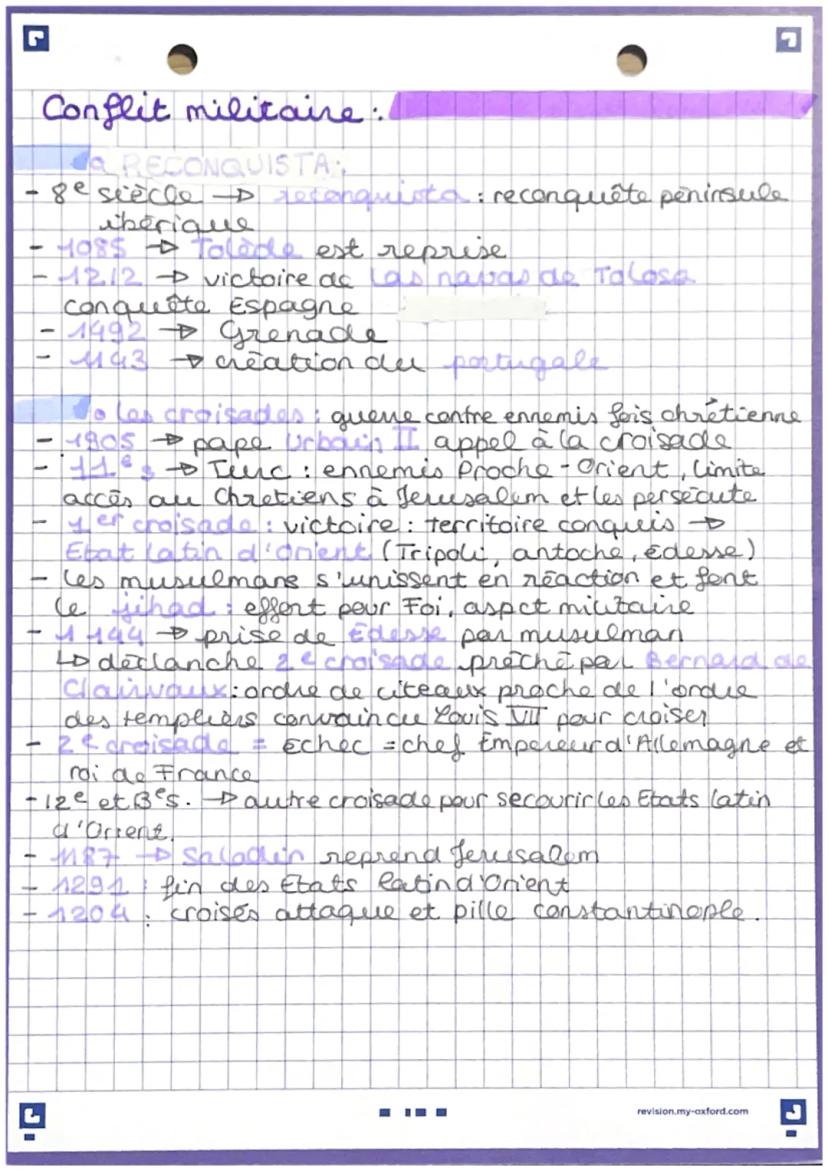 Conflit militaire :
la RECONQUISTA :
- 8e siècle → reconquista : reconquête péninsule
ibérique
- 1085 → Tolède est reprise
- 1212 → victoire de Las navas de Tolosa
conquête Espagne
- 1492 → Grenade
- 1143 → création du portugale
les croisades : guerre contre ennemis fois chrétienne
- 1905 → pape Urbain II appel à la croisade
- 11e s → Turc : ennemis Proche-Orient, limite
accès au Chretiens à Jerusalem et les persécute
- 1er croisade : victoire : territoire conquis →
Etat latin d'orient (Tripoli, antoche, édesse)
- les musulmans s'unissent en réaction et font
le jihad : effort pour Foi, aspct militaire
- 1144 → prise de Édesse par musulman
↳ déclanche 2e croisade prêché par Bernard de
Clairvaux : ordre de citeaux proche de l'ordre
des templiers convaincu Louis VII pour croiser
- 2e croisade = échec = chef Empereur d'Allemagne et
roi de France
- 12e et 13es. → autre croisade pour secourir les Etats latin
d'Orient.
- 1187 → Saladin reprend Jerusalem
- 1291 : fin des États latin d'Orient
- 1204 : croisés attaque et pille constantinople.
revision.my-oxford.com